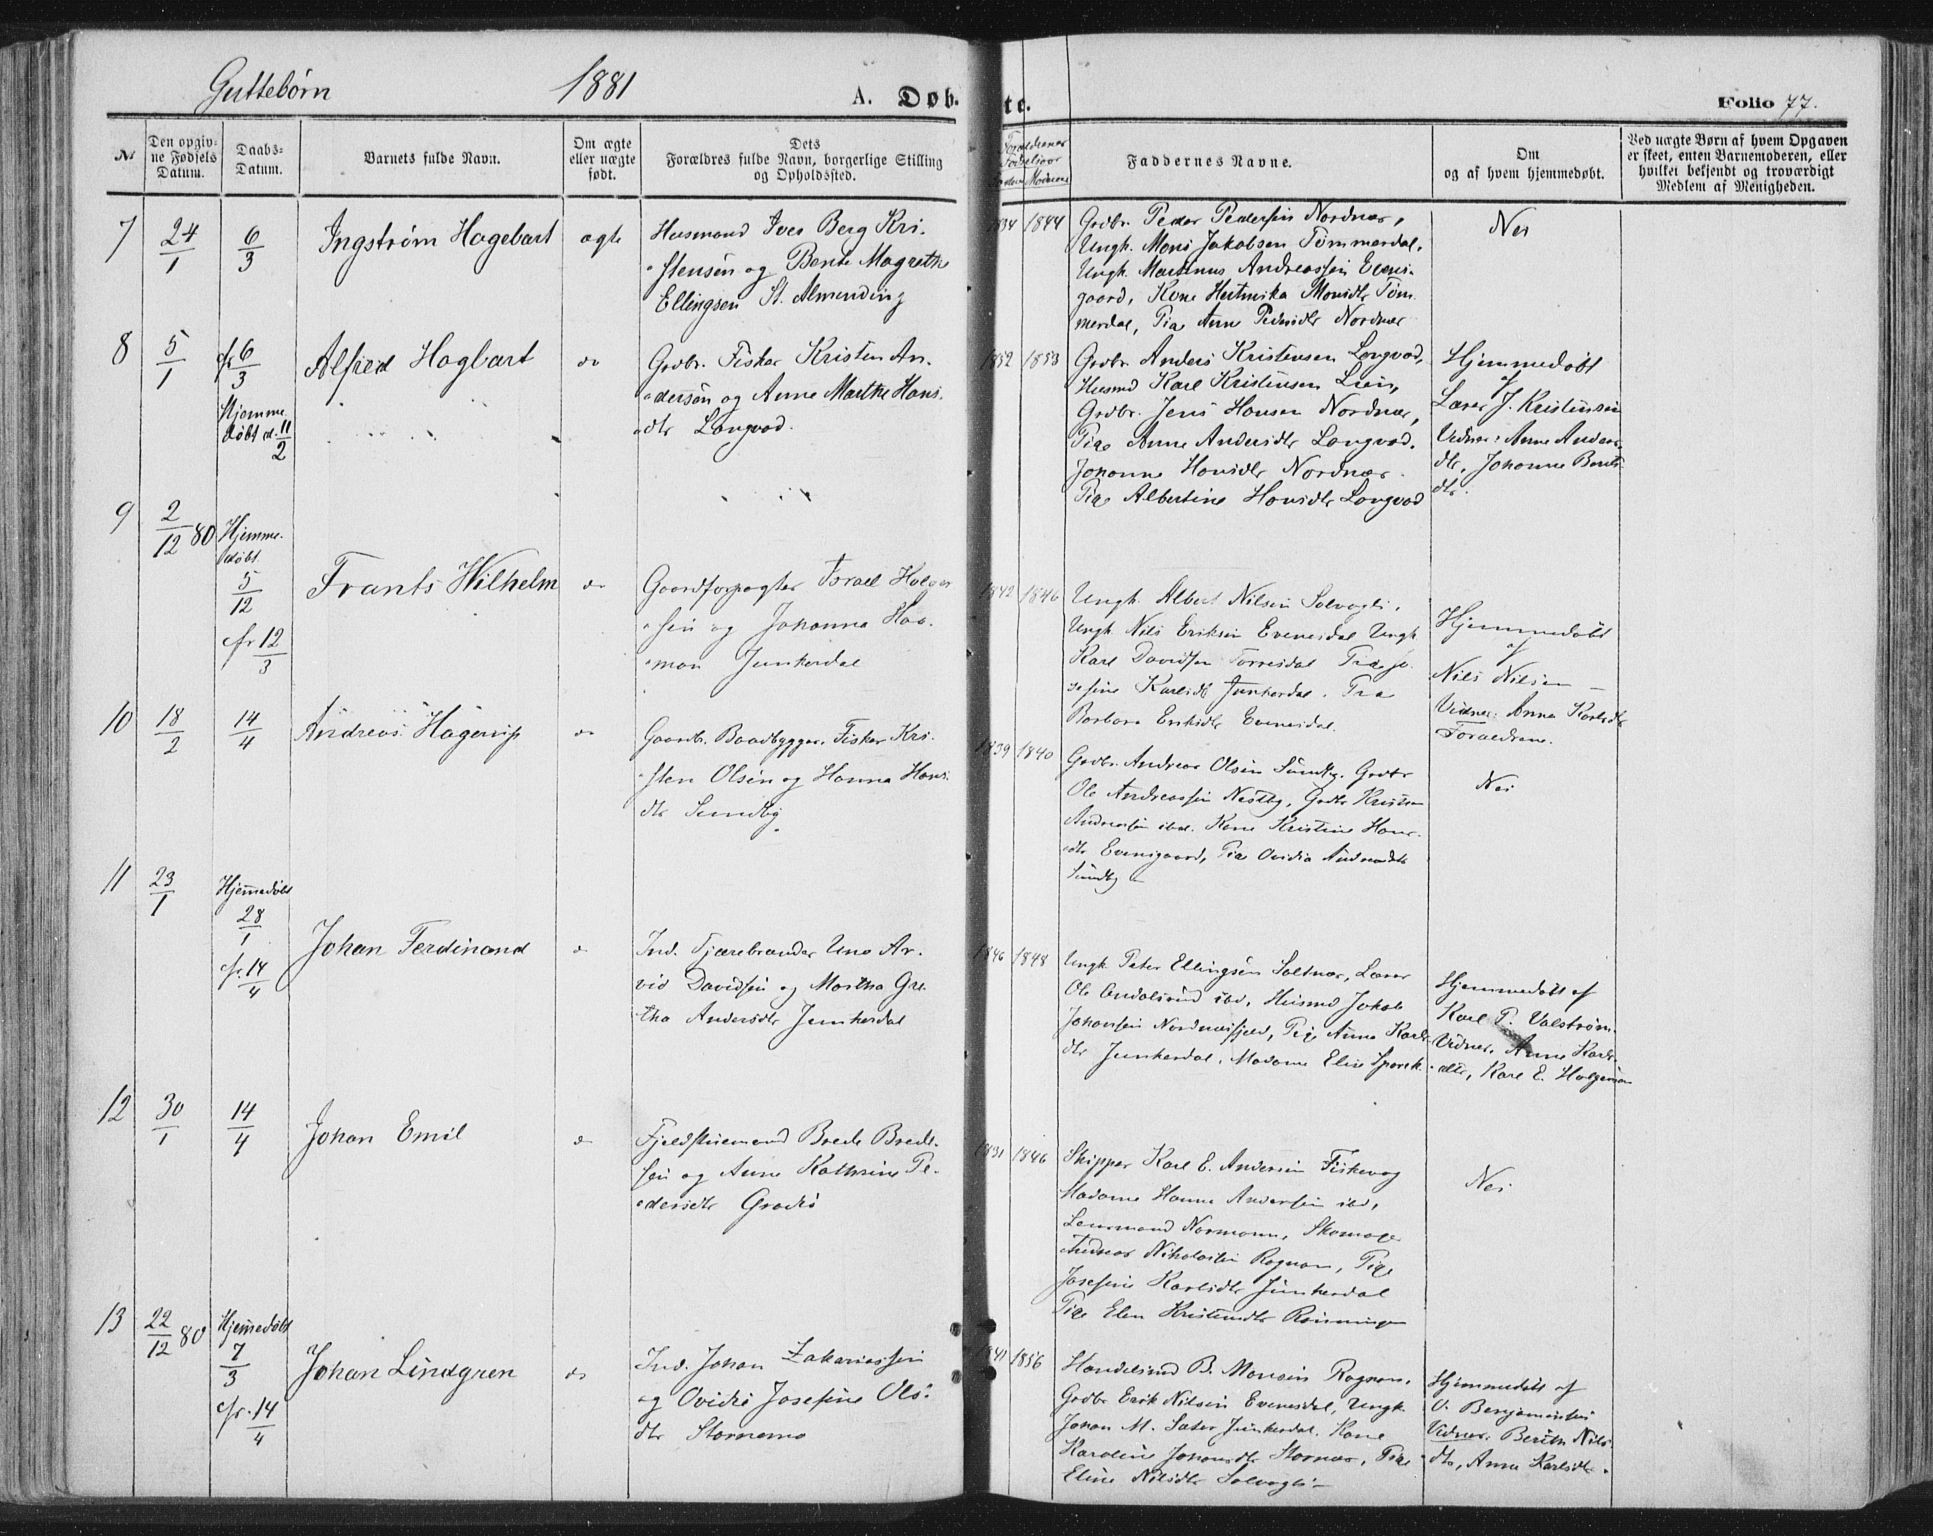 Guttebørn 1881 A. Døb- te. Folio 77.
Nr
Den opgiv-
ne Fødsels
Datum.
Daabs-
Datum.
Barnets fulde Navn.
Om ægte
eller uægte
født.
Dets
Forældres fulde Navn, borgerlige Stilling
og Opholdssted.
Faddernes Navne.
Om
og af hvem hjemmedøbt.
Ved uægte Børn af hvem Opgaven
er skeet, enten Barnemoderen, eller
hvilket bekjendt og troværdigt
Medlem af Menigheden.
7 24/1 6/3 Ingstrøm Hagebart ægte
Husmand Iver Berg Kri-
stensen og Bente Magrethe
Ellingsen St. Almending
1834 1844
Grdbr. Peder Pedersen Nordnær,
Ungk. Mons Jakobsen Tømmerdal.
Ungk Martinus Andreassen Evens-
gaard, Kone Monsdtr Tøm-
merdal, Pia Anne Pedersdtr Nordnær
Nei
8 5/1 cfr 6/3
Hjemme-
døbt d. 11/2
Alfred Hagbart do
Grdbr. Fisker Kristen An-
dersen og Anne Marthe Hans-
dtr Langvad.
1852 1853
Grdbr. Anders Kristensen Langvad,
Husmd Karl Kristensen Lien,
Grdbr. Jens Hansen Nordnær,
Pige Anne Andersdtr Langvad.
Johanne Hansdtr Nordnær.
Pige Albertine Hansdtr Langvad
Hjemmedøbt
af
Lærer J. Kristensen
Vidner: Anne Anders-
dtr, Johanne Bents-
dtr.
9 2/12 80
Hjemme-
døbt
5/12
cfr 12/3
Frants Wilhelm do
Gaardforpagter Israel Holger-
sen og Johanna Haa-
man Junkerdal
1842 1846
Ungk. Albert Nilsen Solvagli,
Ungk Nils Eriksen Evenesdal Ungk
Karl Davidsen Torresdal Pia Jo-
sefine Karlsdt Junkerdal. Pia
Barbara Eriksdtr Evenesdal.
Hjemmedøbt
af
Nils Nilsen –
Vidner: Anna Karlsdtr
Forældrene.
10 18/2 14/4 Andreas Hagerup do
Gaardbr. Baadbygger. Fisker Kri-
sten Olsen og Hanna Hans-
dtr Sundby
1839 1840
Grdbr. Andreas Olsen Sundby. Grdbr
Ole Andreassen Nestby, Grdbr Kristen
Andreassen ibd. Kone Kristine Hans-
dtr Evensgaard, Pia Ovidia Andreasdtr
Sundby –
Nei
11 23/1
Hjemmedøbt
28/1
cfr. 14/4
Johan Ferdinand do
Ind. Tjærebrænder Uno Ar-
vid Davidsen og Martha Gre-
tha Andersdtr Junkerdal
1846 1848
Ungk Peter Ellingsen Saltnær, Lærer
Ole ibd, Husmd Jakob
Johansen Nordnæsfjeld, Pige Anna Karls-
dtr Junkerdal. Madame Elise Spørck.
Hjemmedøbt af
Karl P. Valstrøm.
Vidner. Anne Karls-
dtr, Karl E. Holgersen
12 30/1 14/4 Johan Emil do
Fjeldstuemand Brede Brede-
sen og Anne Kathrine Pe-
dersdtr Gradis
1831 1846
Skipper Karl E. Andersen Fiskevog
Madame Hanna Andersen ibd,
Lensmand Normann, Skomager
Andreas Nikolaisen Rognan, Pige
Josefine Karlsdtr Junkerdal
Pige Elen Kristensdtr Rønningen
Nei
13 22/12 80
Hjemmedøbt
7/3
cfr. 14/4
Johan Lindgren do
Ind. Johan Zakariassen
og Ovidia Josefine Ols-
dtr Storremo
1841 1856
Handelsmd B. Monsen Rognan.
Grdbr Erik Nilsen Evenesdal, Ungk.
Johan M. Sater Junkerdal. Kone
Karoline Johansdtr Stornær, Pige
Eline Nilsdtr Solvagli –
Hjemmedøbt af
O. Benjaminsen
Vidner. Berith Nils-
dtr, Anna Karlsdtr.